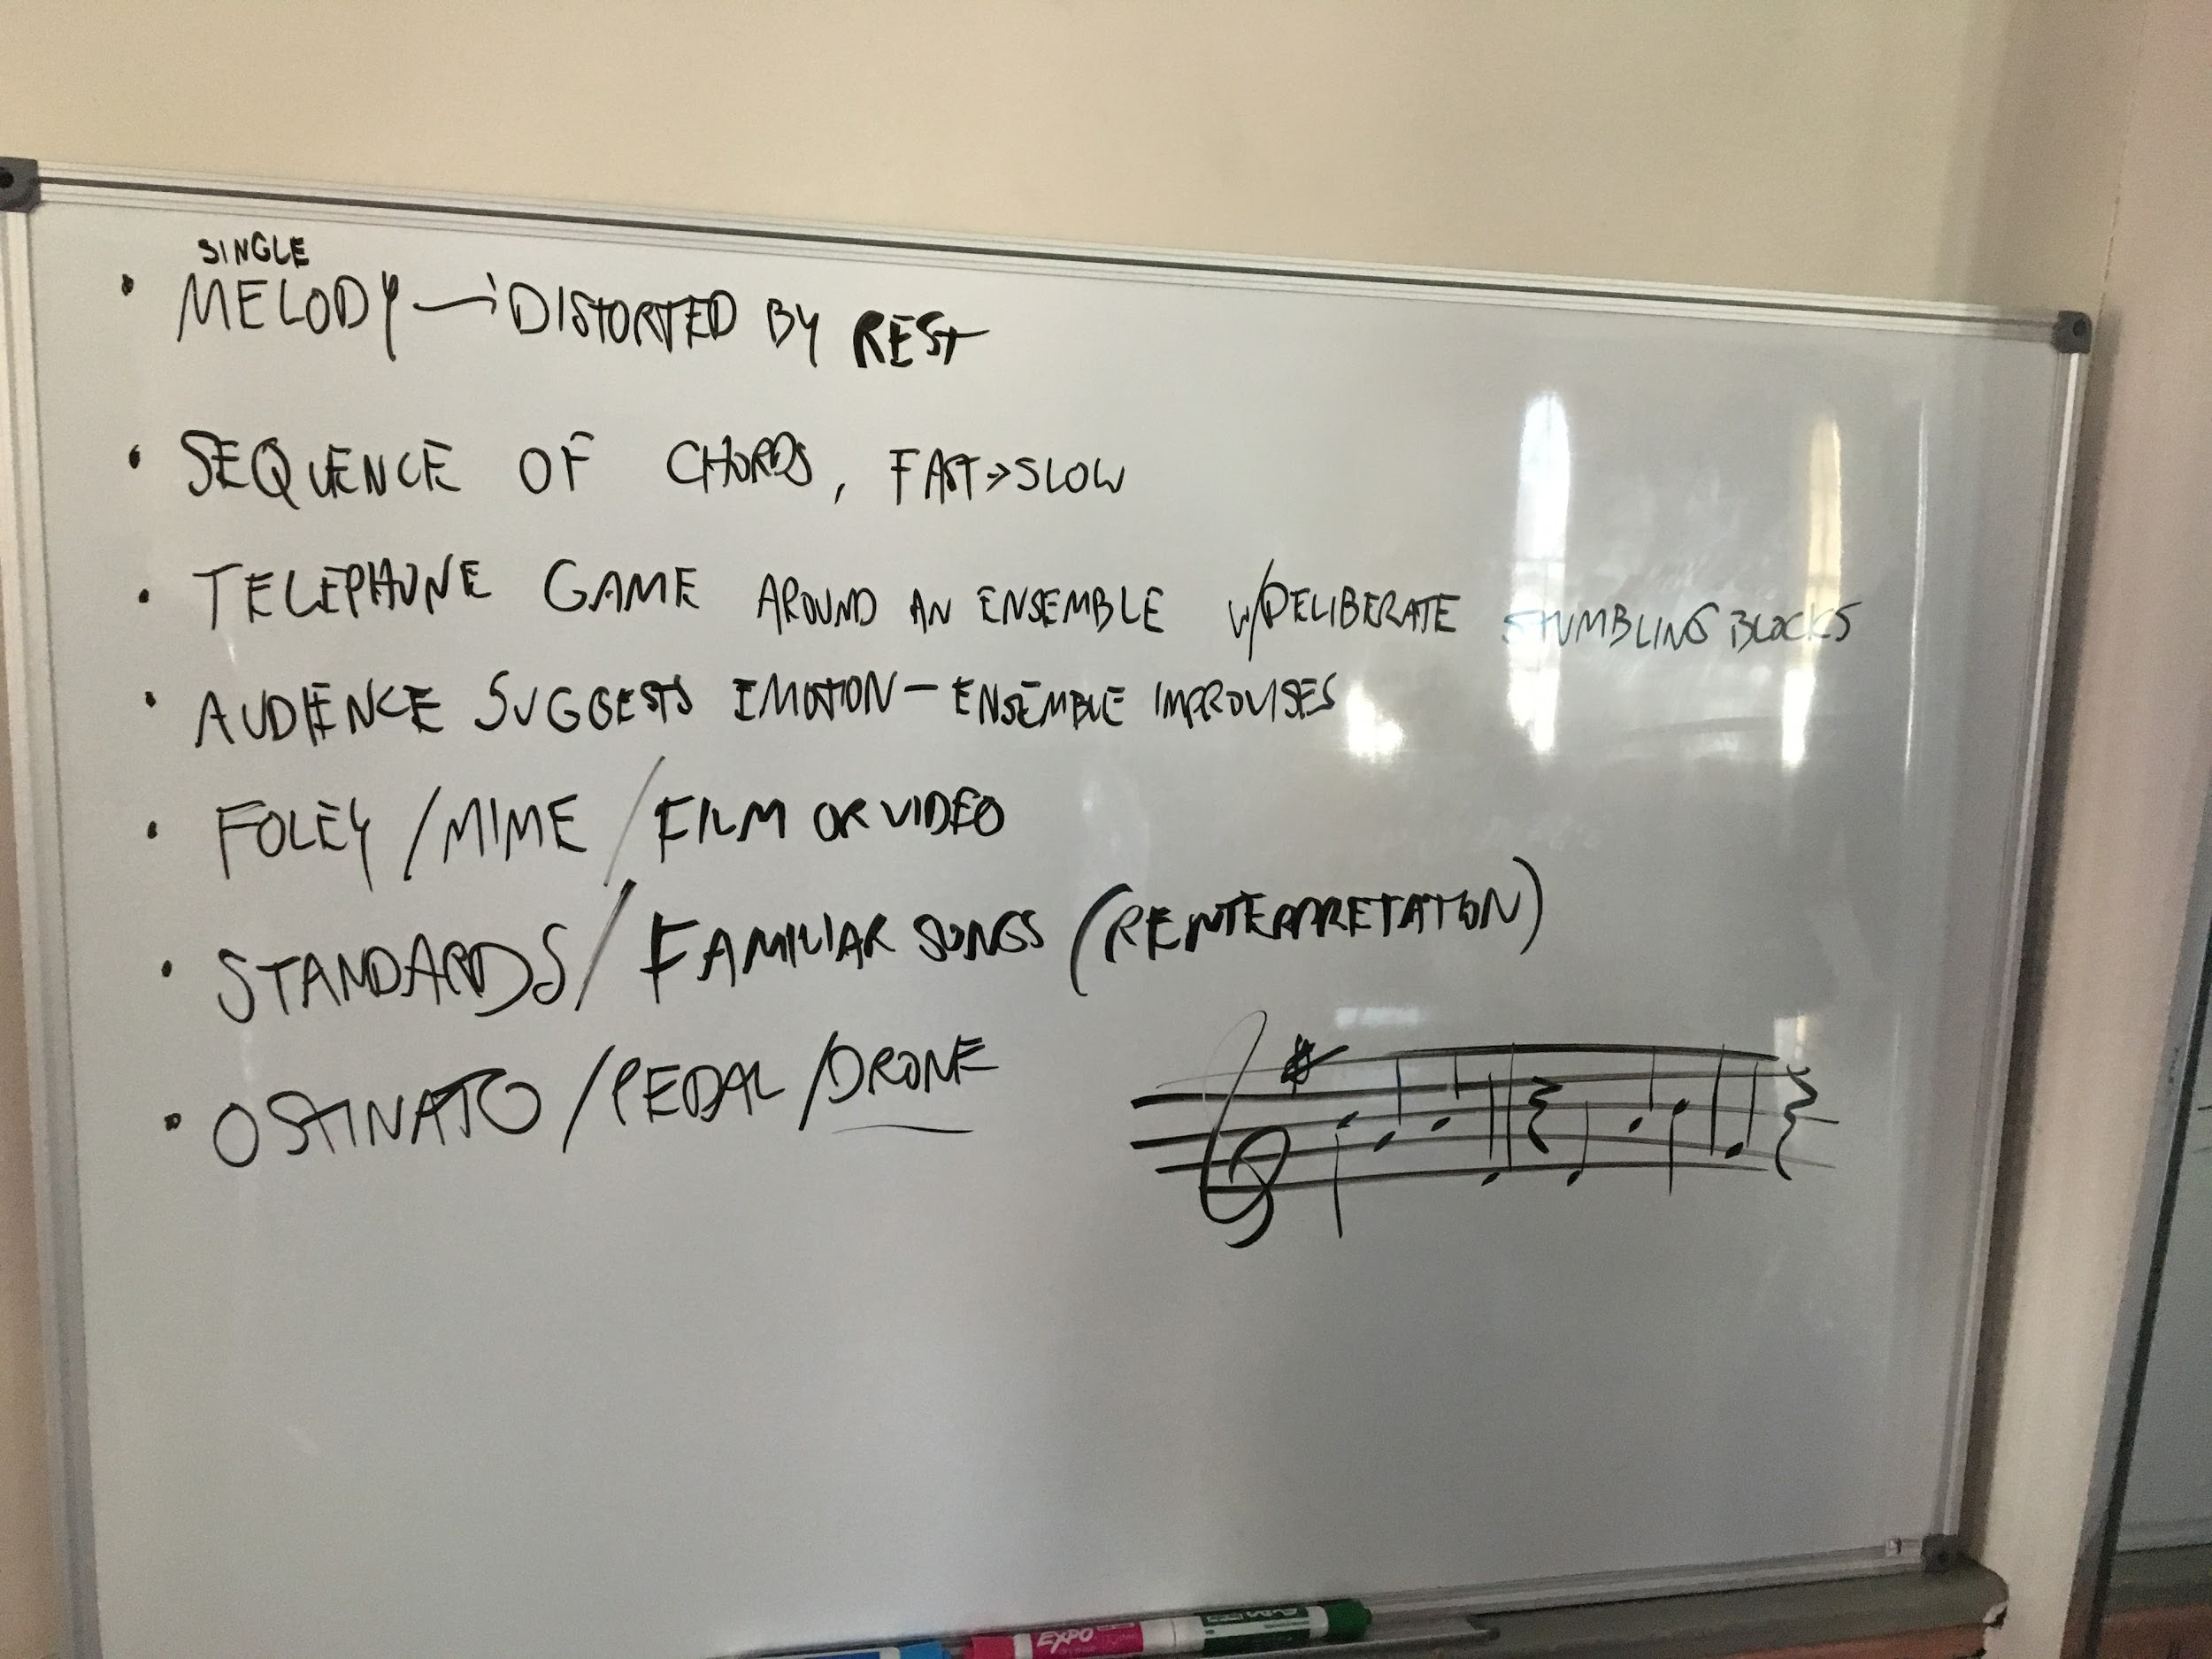 SINGLE
• MELODY → DISTORTED BY REST
• SEQUENCE OF CHORDS, FAST → SLOW
• TELEPHONE GAME AROUND AN ENSEMBLE w/DELIBERATE STUMBLING BLOCKS
• AUDIENCE SUGGESTS EMOTION - ENSEMBLE IMPROVISES
• FOLEY / MIME / FILM OR VIDEO
• STANDARDS / FAMILIAR SONGS (REINTERPRETATION)
• OSTINATO / PEDAL / DRONE
EXPO